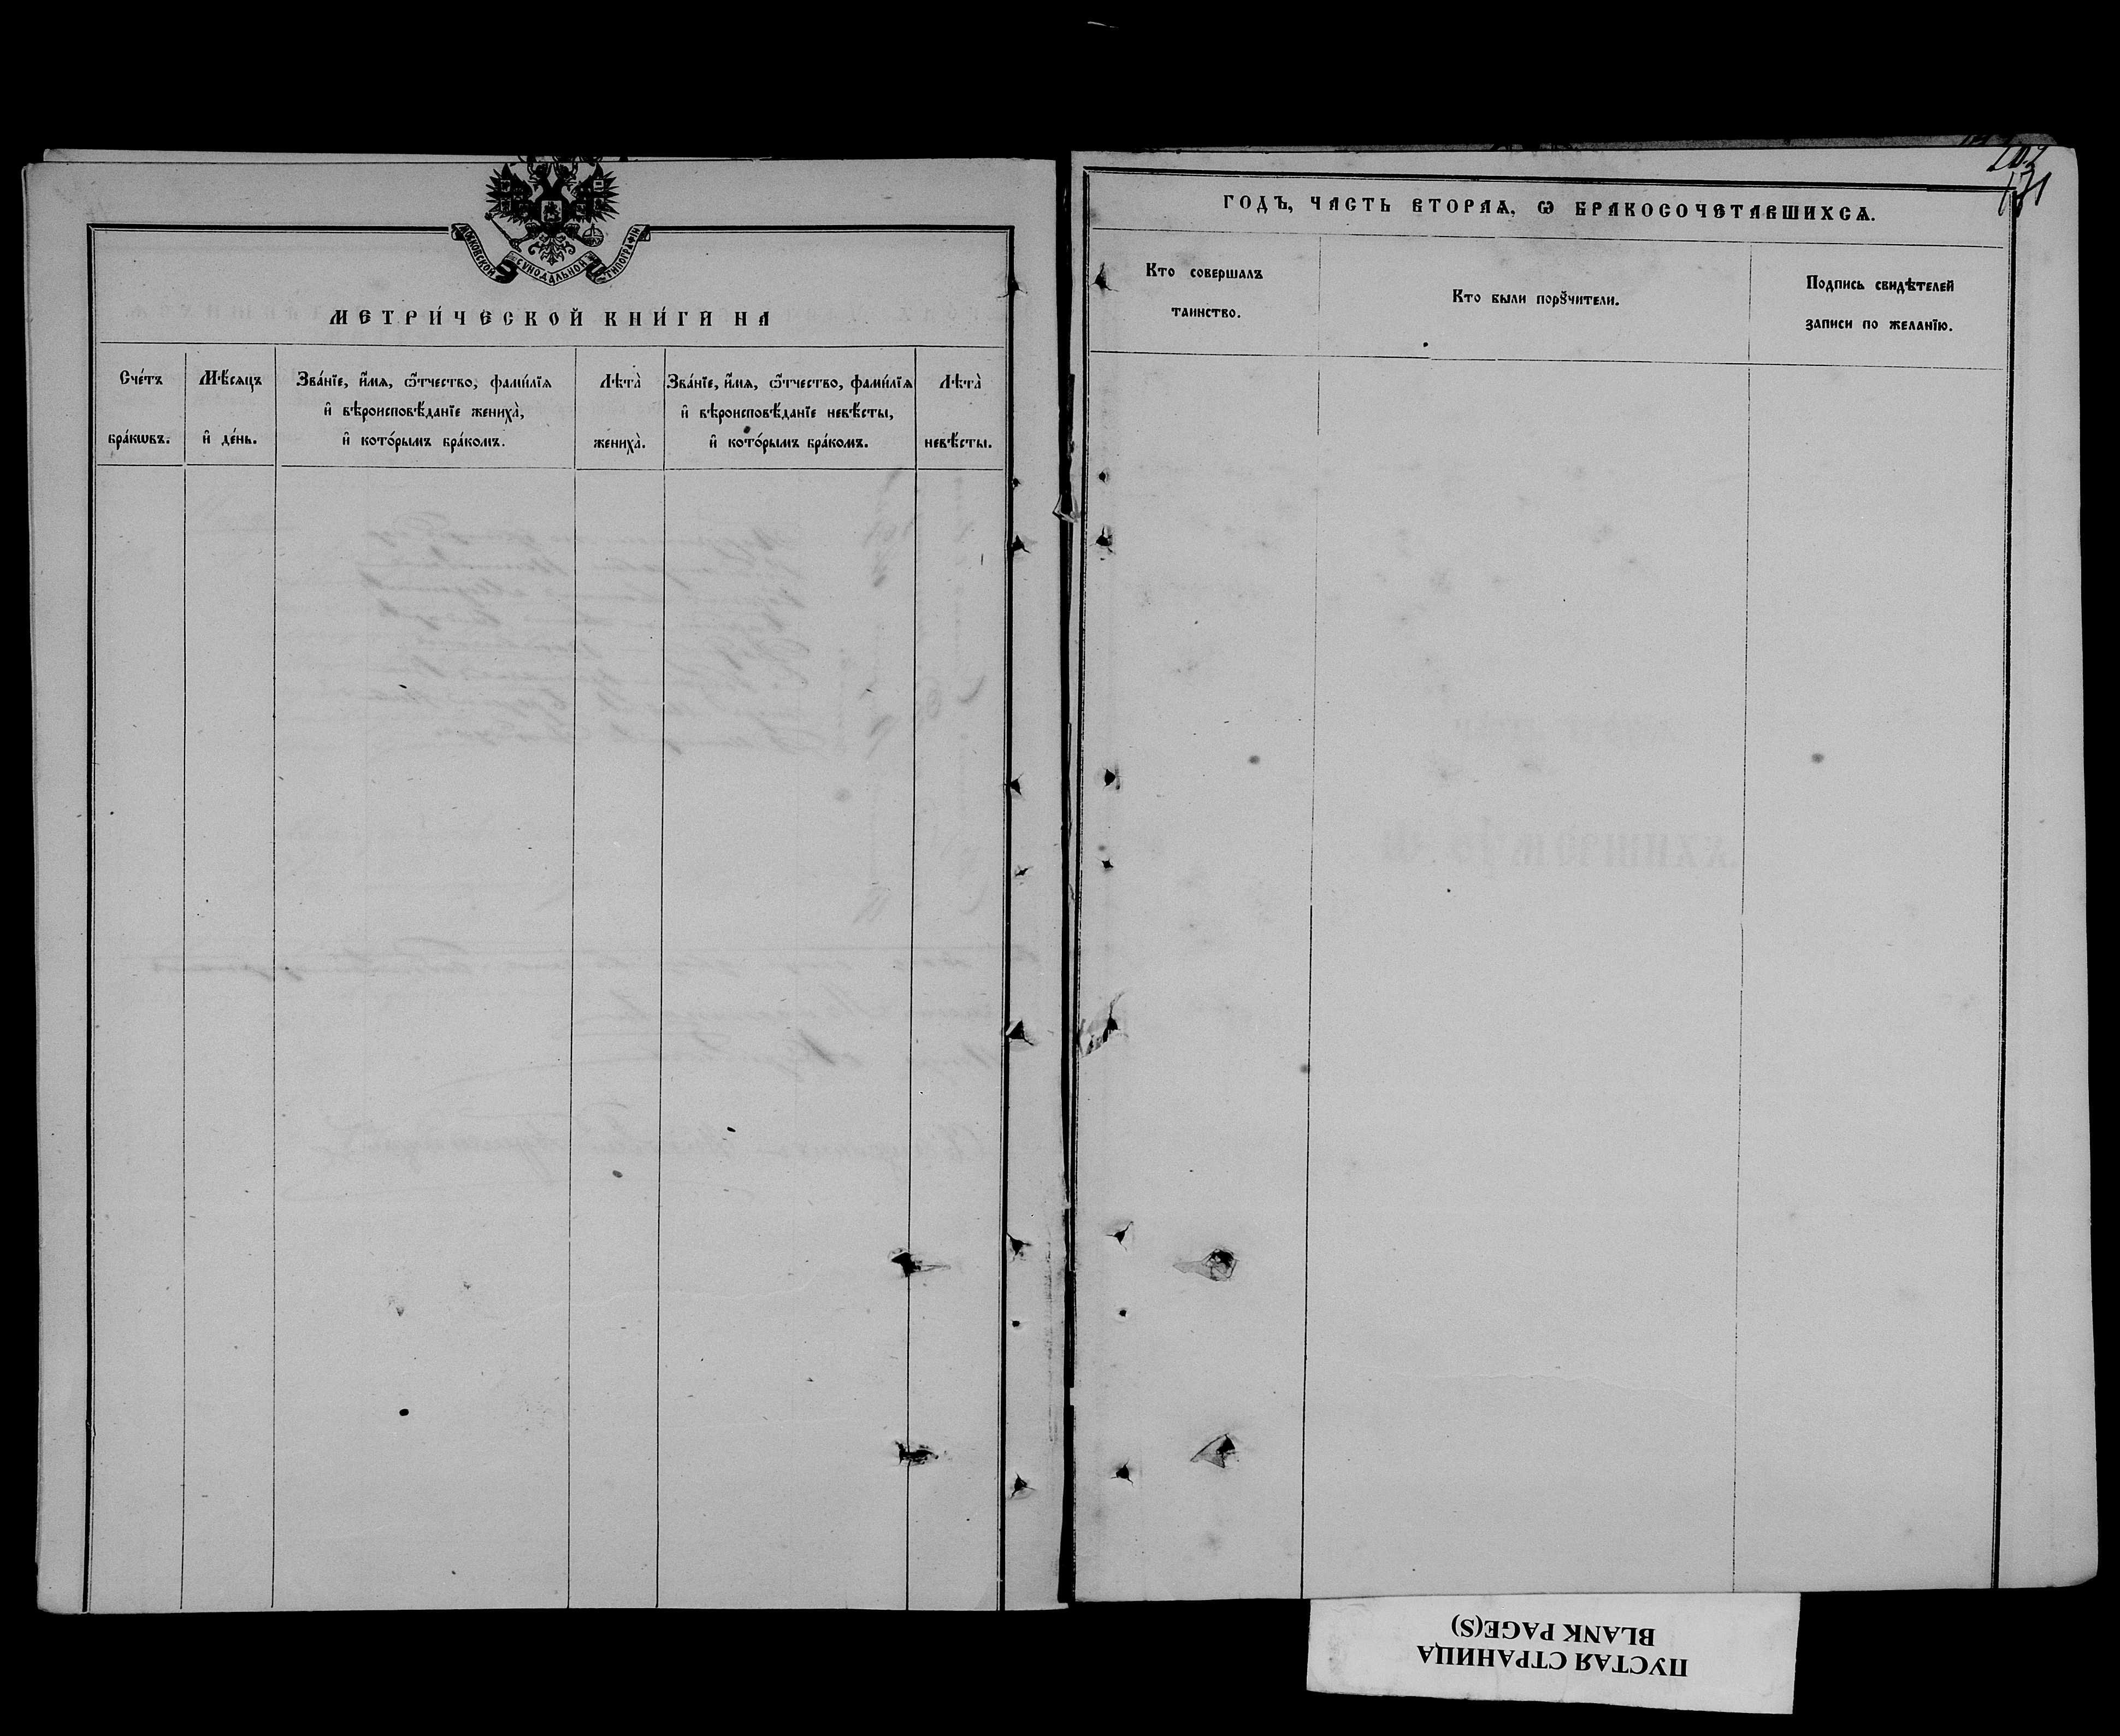 МОСКОВСКОЙ СѴНОДАЛЬНОЙ ТИПОГРАФІИ
МЕТРИ́ЧЕСКОЙ КНИ́ГИ НА
Сче́тъ бра́кѡвъ.
Мѣ́сѧцъ и҆ де́нь.
Зва́нїе, и҆́мѧ, ѻ҆́тчество, фами́лїѧ
и҆ вѣроисповѣ́данїе жениха̀,
и҆ кото́рымъ бра́комъ.
Лѣта̀
жениха̀.
Зва́нїе, и҆́мѧ, ѻ҆́тчество, фами́лїѧ
и҆ вѣроисповѣ́данїе невѣ́сты,
и҆ кото́рымъ бра́комъ.
Лѣта̀
невѣ́сты.
ГОДЪ, ЧАСТЬ ВТОРАѦ, Ѡ БРАКОСОЧЕТАВШИХСѦ.
Кто совершалъ
таинство.
Кто были порꙋчители.
Подпись свидѣтелей
записи по желанїю.
131
ПУСТАЯ СТРАНИЦА
BLANK PAGE(S)